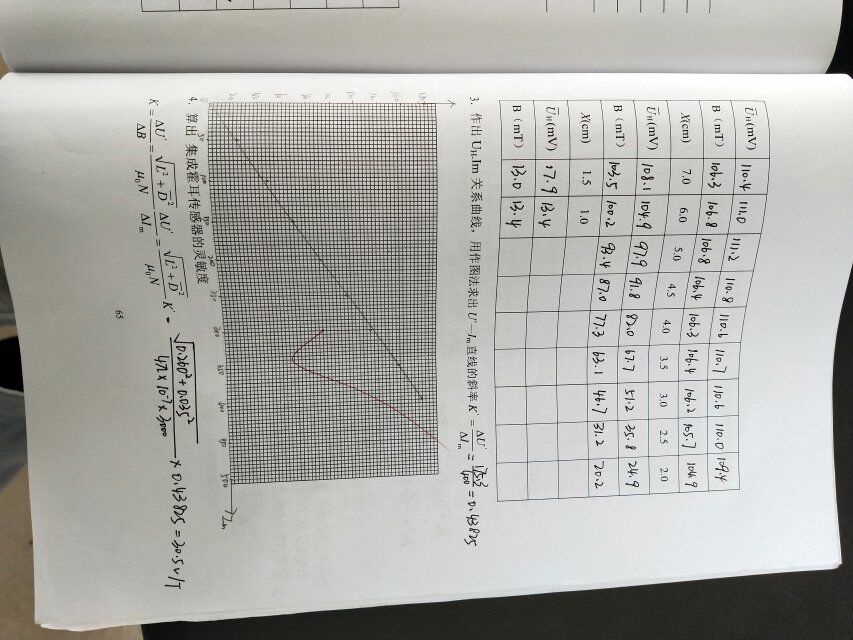 Ū_H(mV) 110.4 111.0 111.2 110.8 110.6 110.7 110.6 110.0 109.4
B (mT) 106.3 106.8 106.8 106.4 106.3 106.4 106.2 105.7 104.9
X(cm) 7.0 6.0 5.0 4.5 4.0 3.5 3.0 2.5 2.0
Ū_H(mV) 108.1 104.9 97.9 91.8 82.0 67.7 51.2 35.8 24.9
B (mT) 103.5 100.2 93.4 87.0 77.3 63.1 46.7 31.2 20.2
X(cm) 1.5 1.0
Ū_H(mV) 17.9 13.4
B (mT) 13.0 13.4
3. 作出 U_H-Im 关系曲线，用作图法求出 U'—I_m 直线的斜率 K' = ΔU'/ΔI_m = /400 = 0.43825
50 300 350 500
Im
4. 算出 集成霍耳传感器的灵敏度
K = ΔU'/ΔB = √(L²+D̄²)/μ₀N ΔU'/ΔI_m = √(L²+D̄²)/μ₀N K' = √(0.260²+0.035²)/(4π×10⁻⁷×3000) × 0.43825 = 30.5 V/T
65